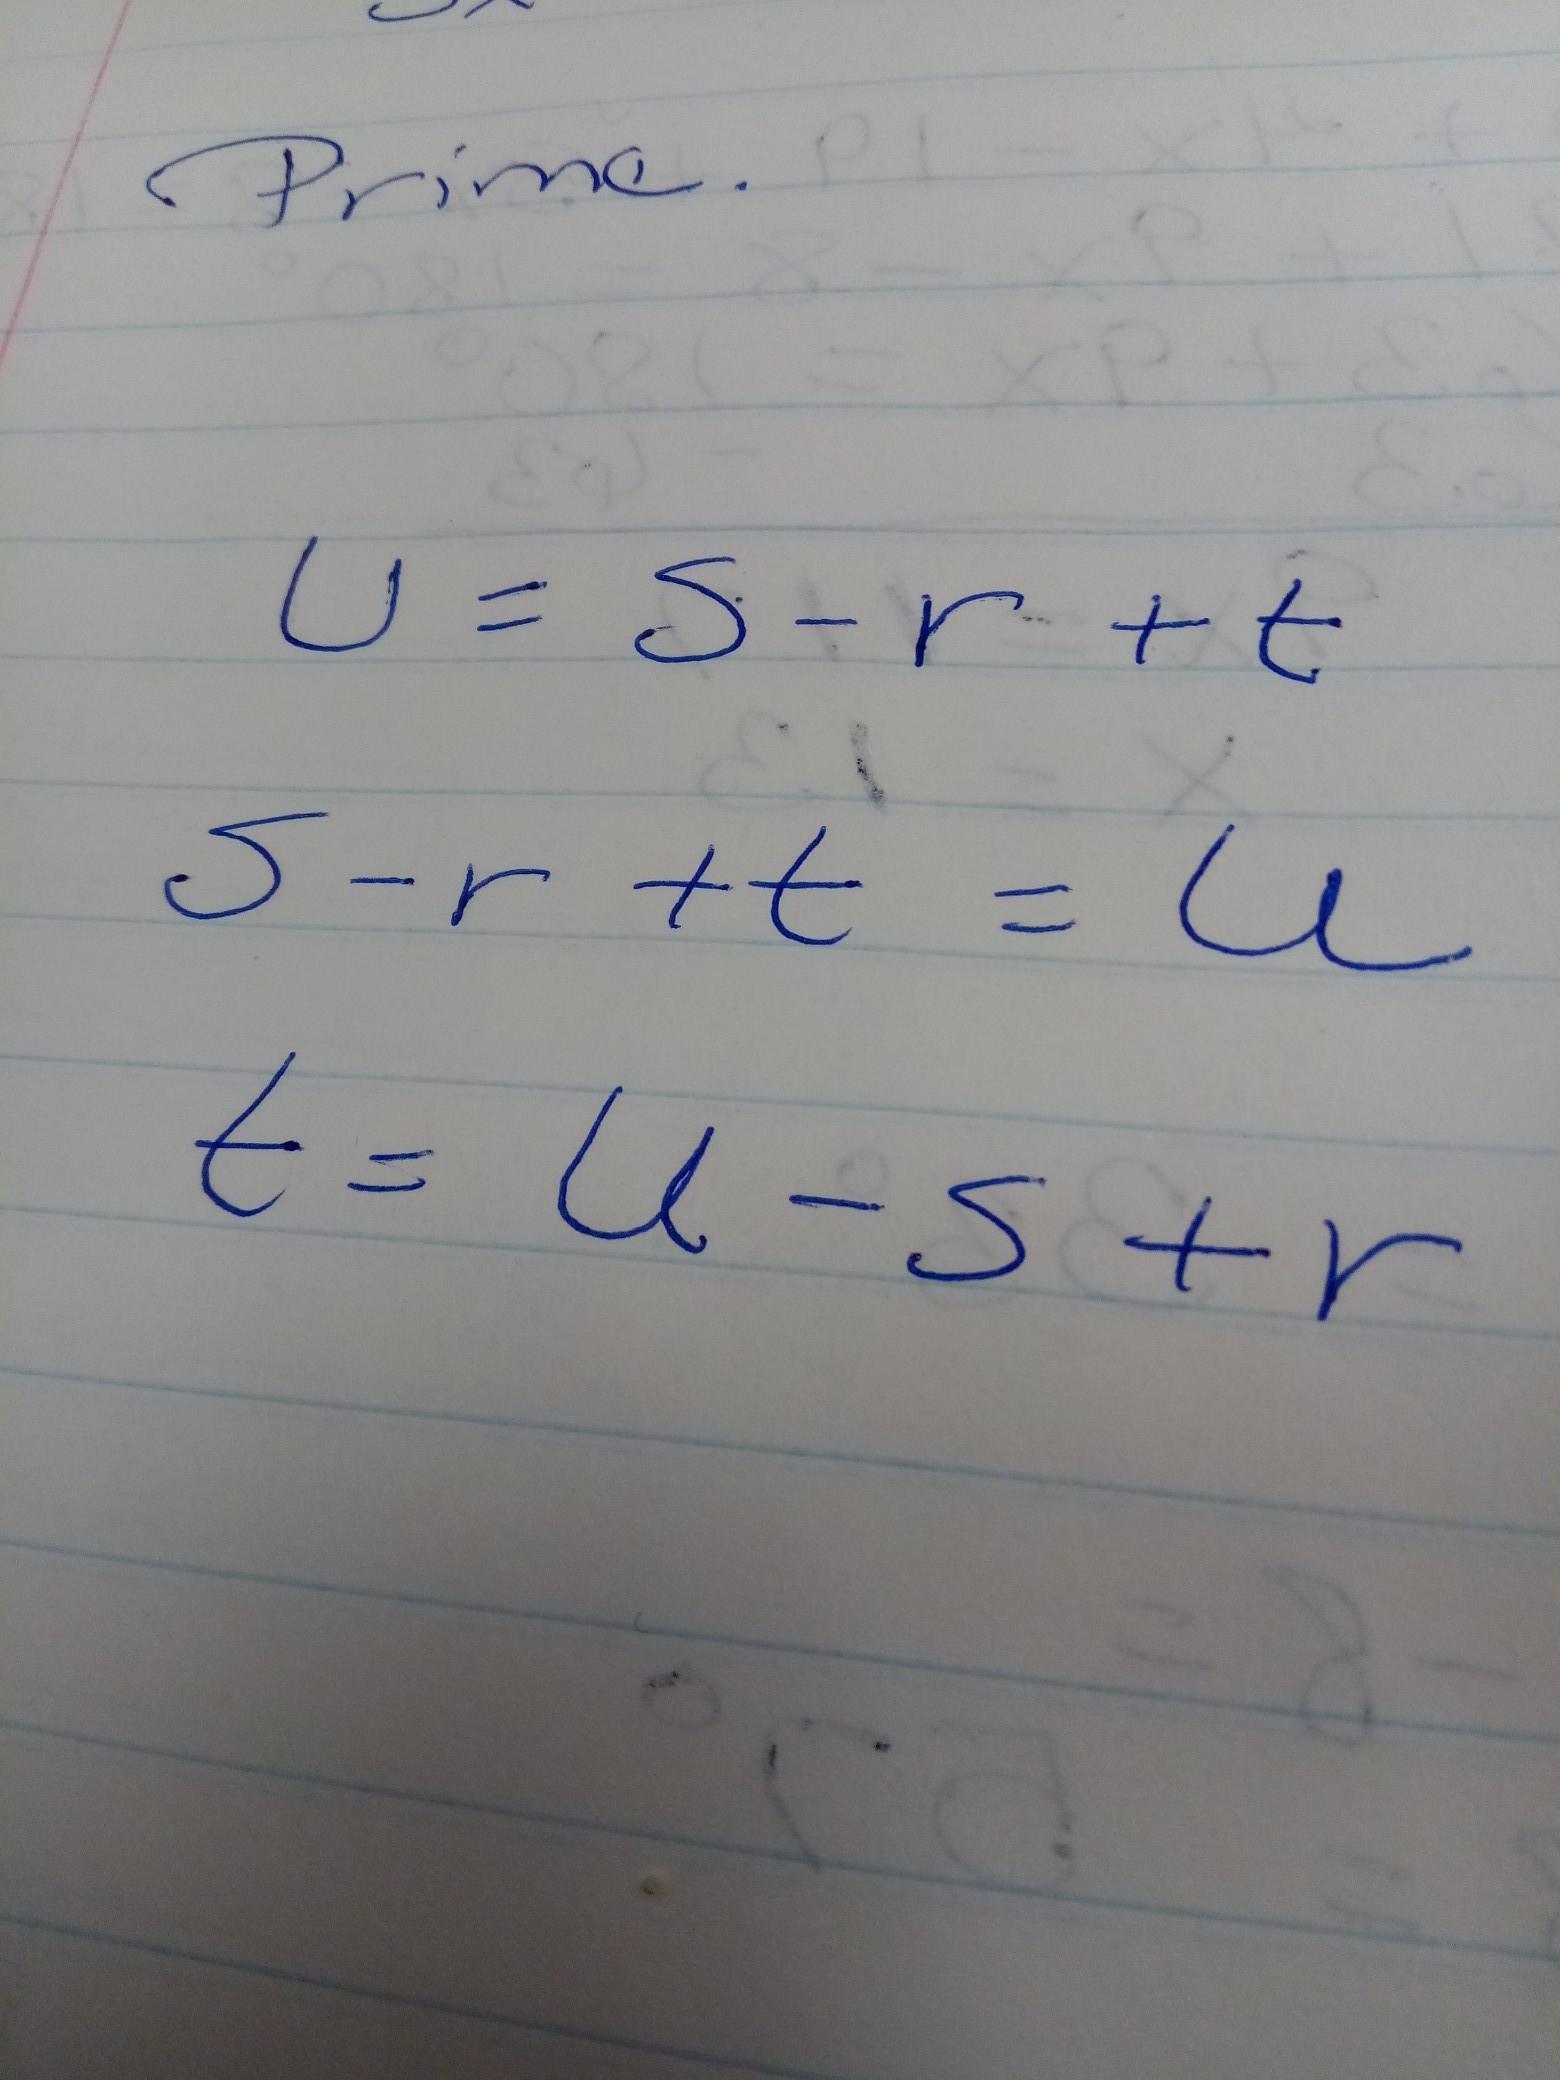 Prime.
U = S - r + t
S - r + t = u
t = u - s + r